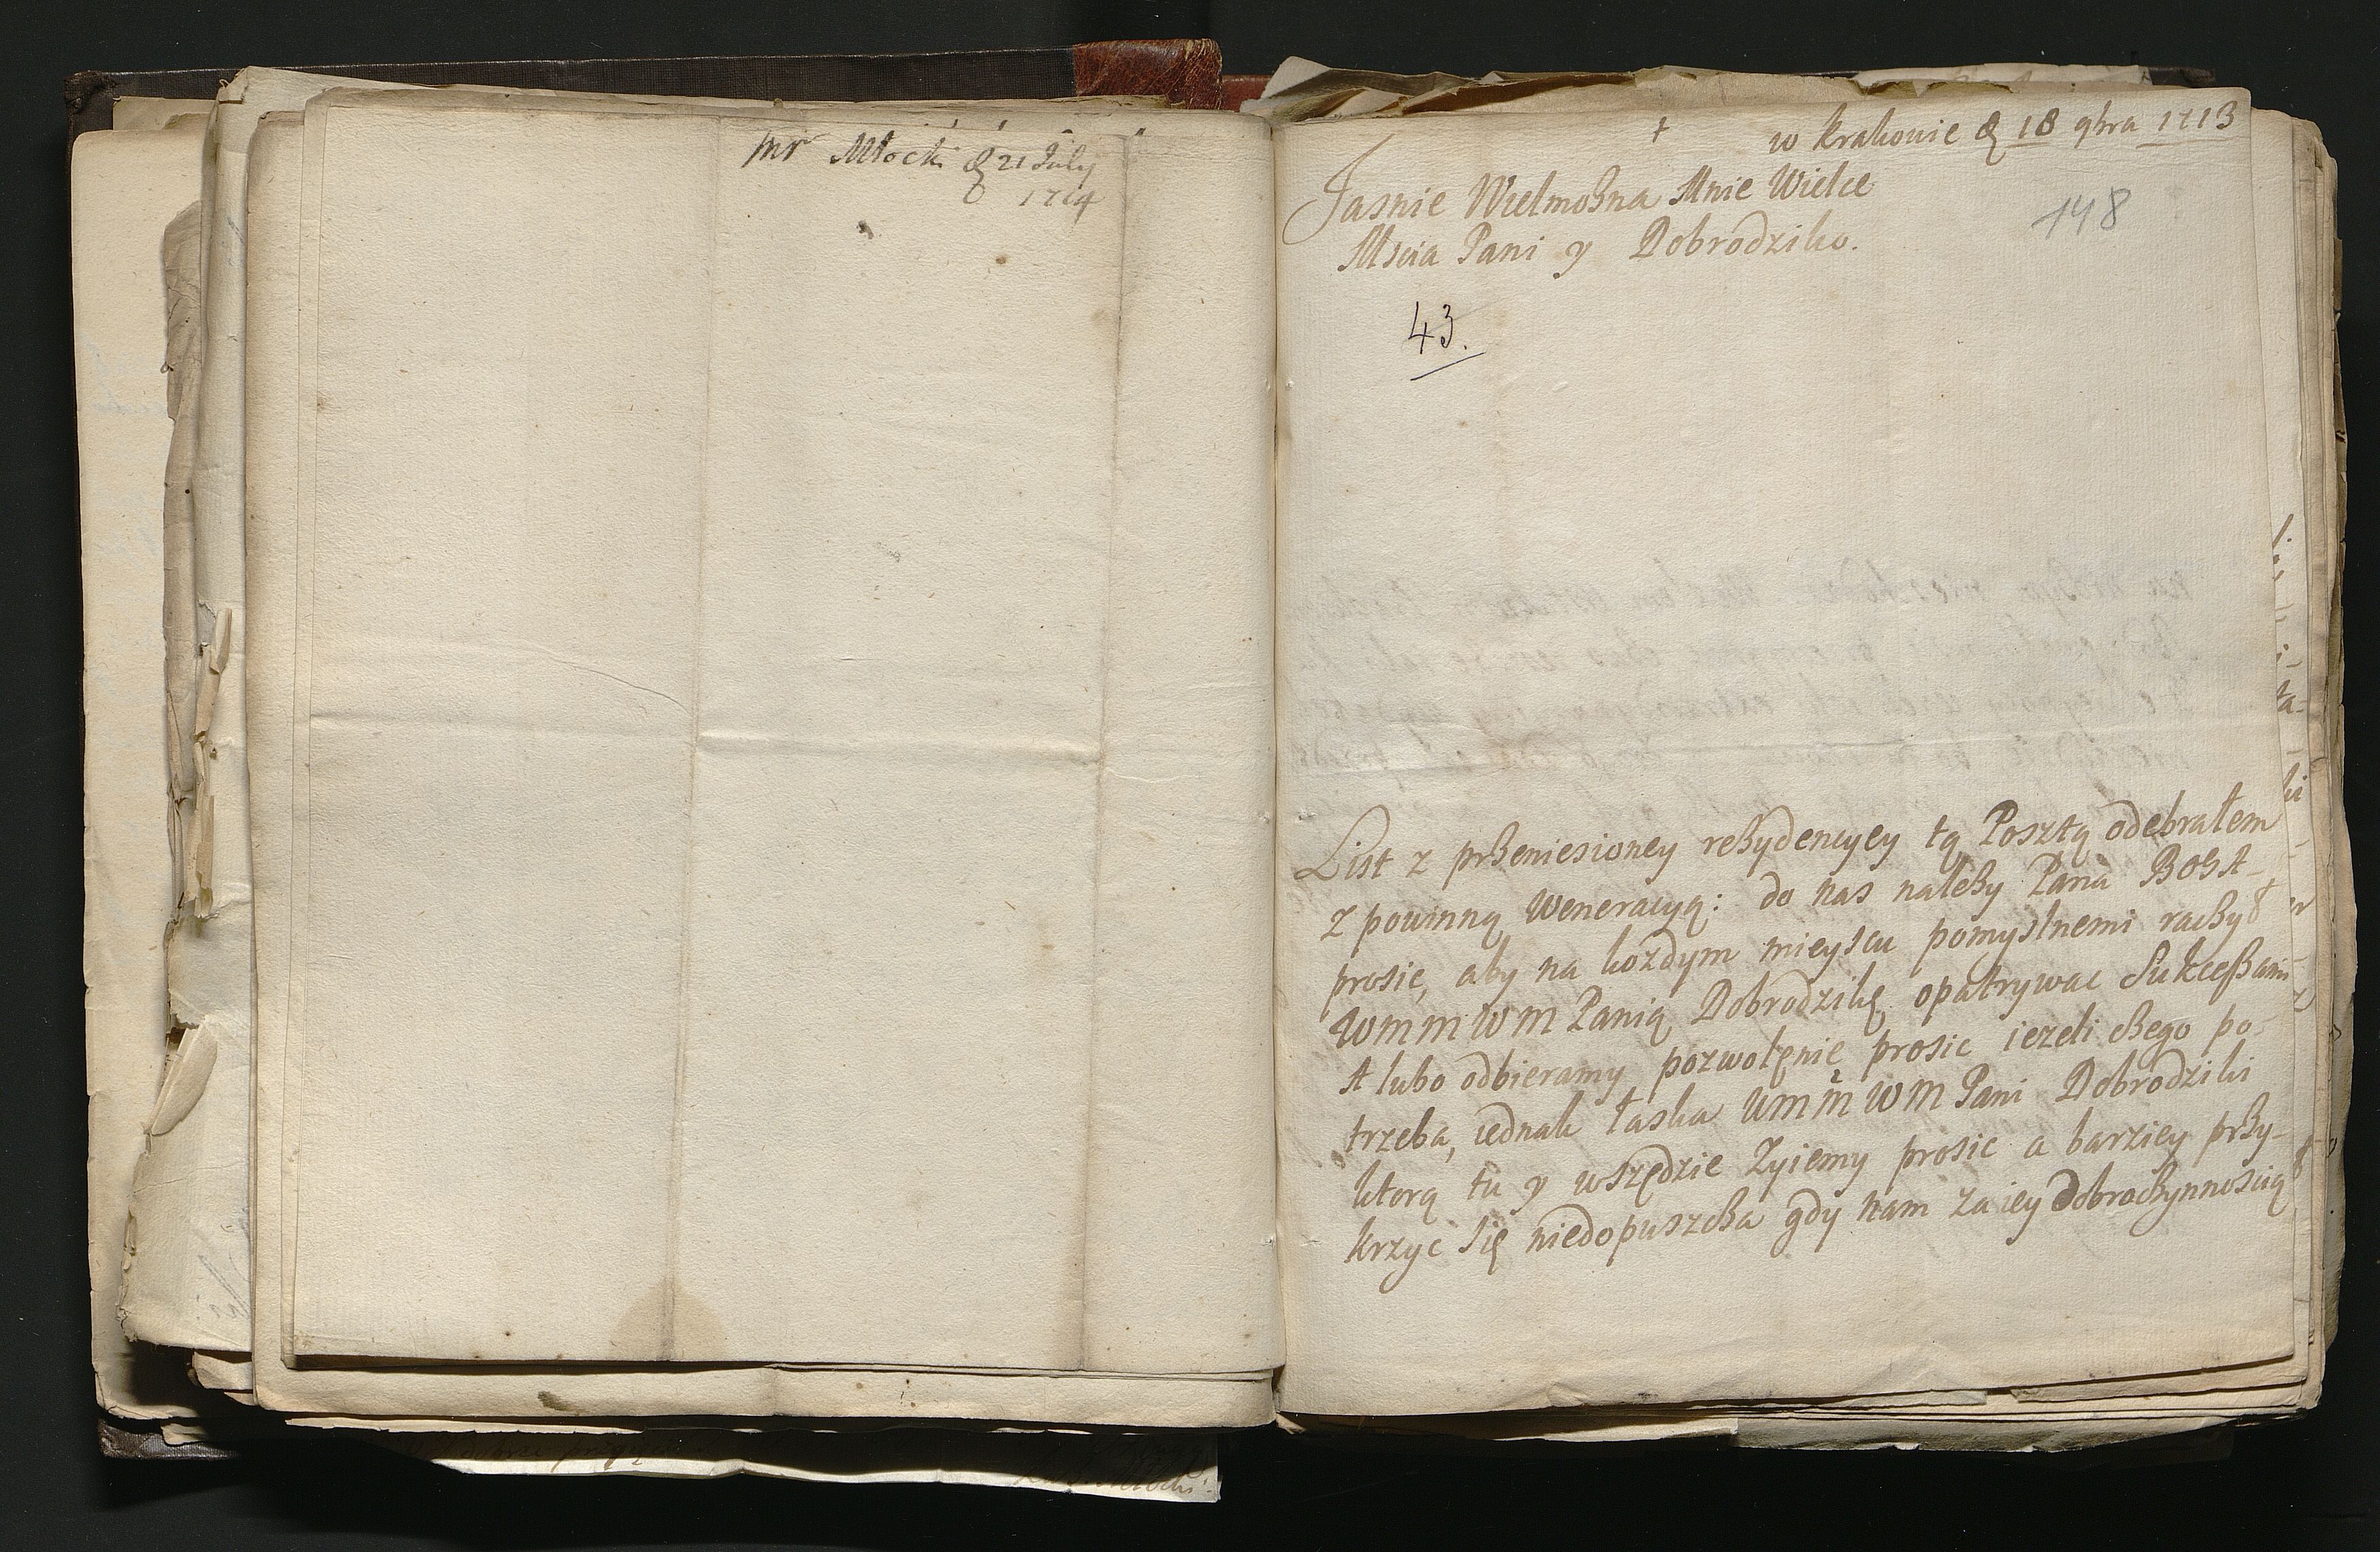 Mr Młocki d 21 July
1714
+
w Krakowie d 18 9bra 1713
Jasnie Wielmożna Mnie Wielce
Mscia Pani y Dobrodziko.
148
43.
List z przeniesioney rezydencyey tą Posztą odebrałem
z powinną Weneracyą: do nas należy Pana BOGA
prosic, aby na kozdym mieyscu pomyslnemi raczył
WMMWM Panią Dobrodzikę opatrywac Sukcessami
A lubo odbieramy pozwolenie prosic iezeli czego po-
trzeba, iednak łaska WMMWM Pani Dobrodziki
ktorą tu y wszędzie Zyiemy prosic a barziey przy-
krzyc się niedopuszcza gdy nam za iey dobroczynnoscią